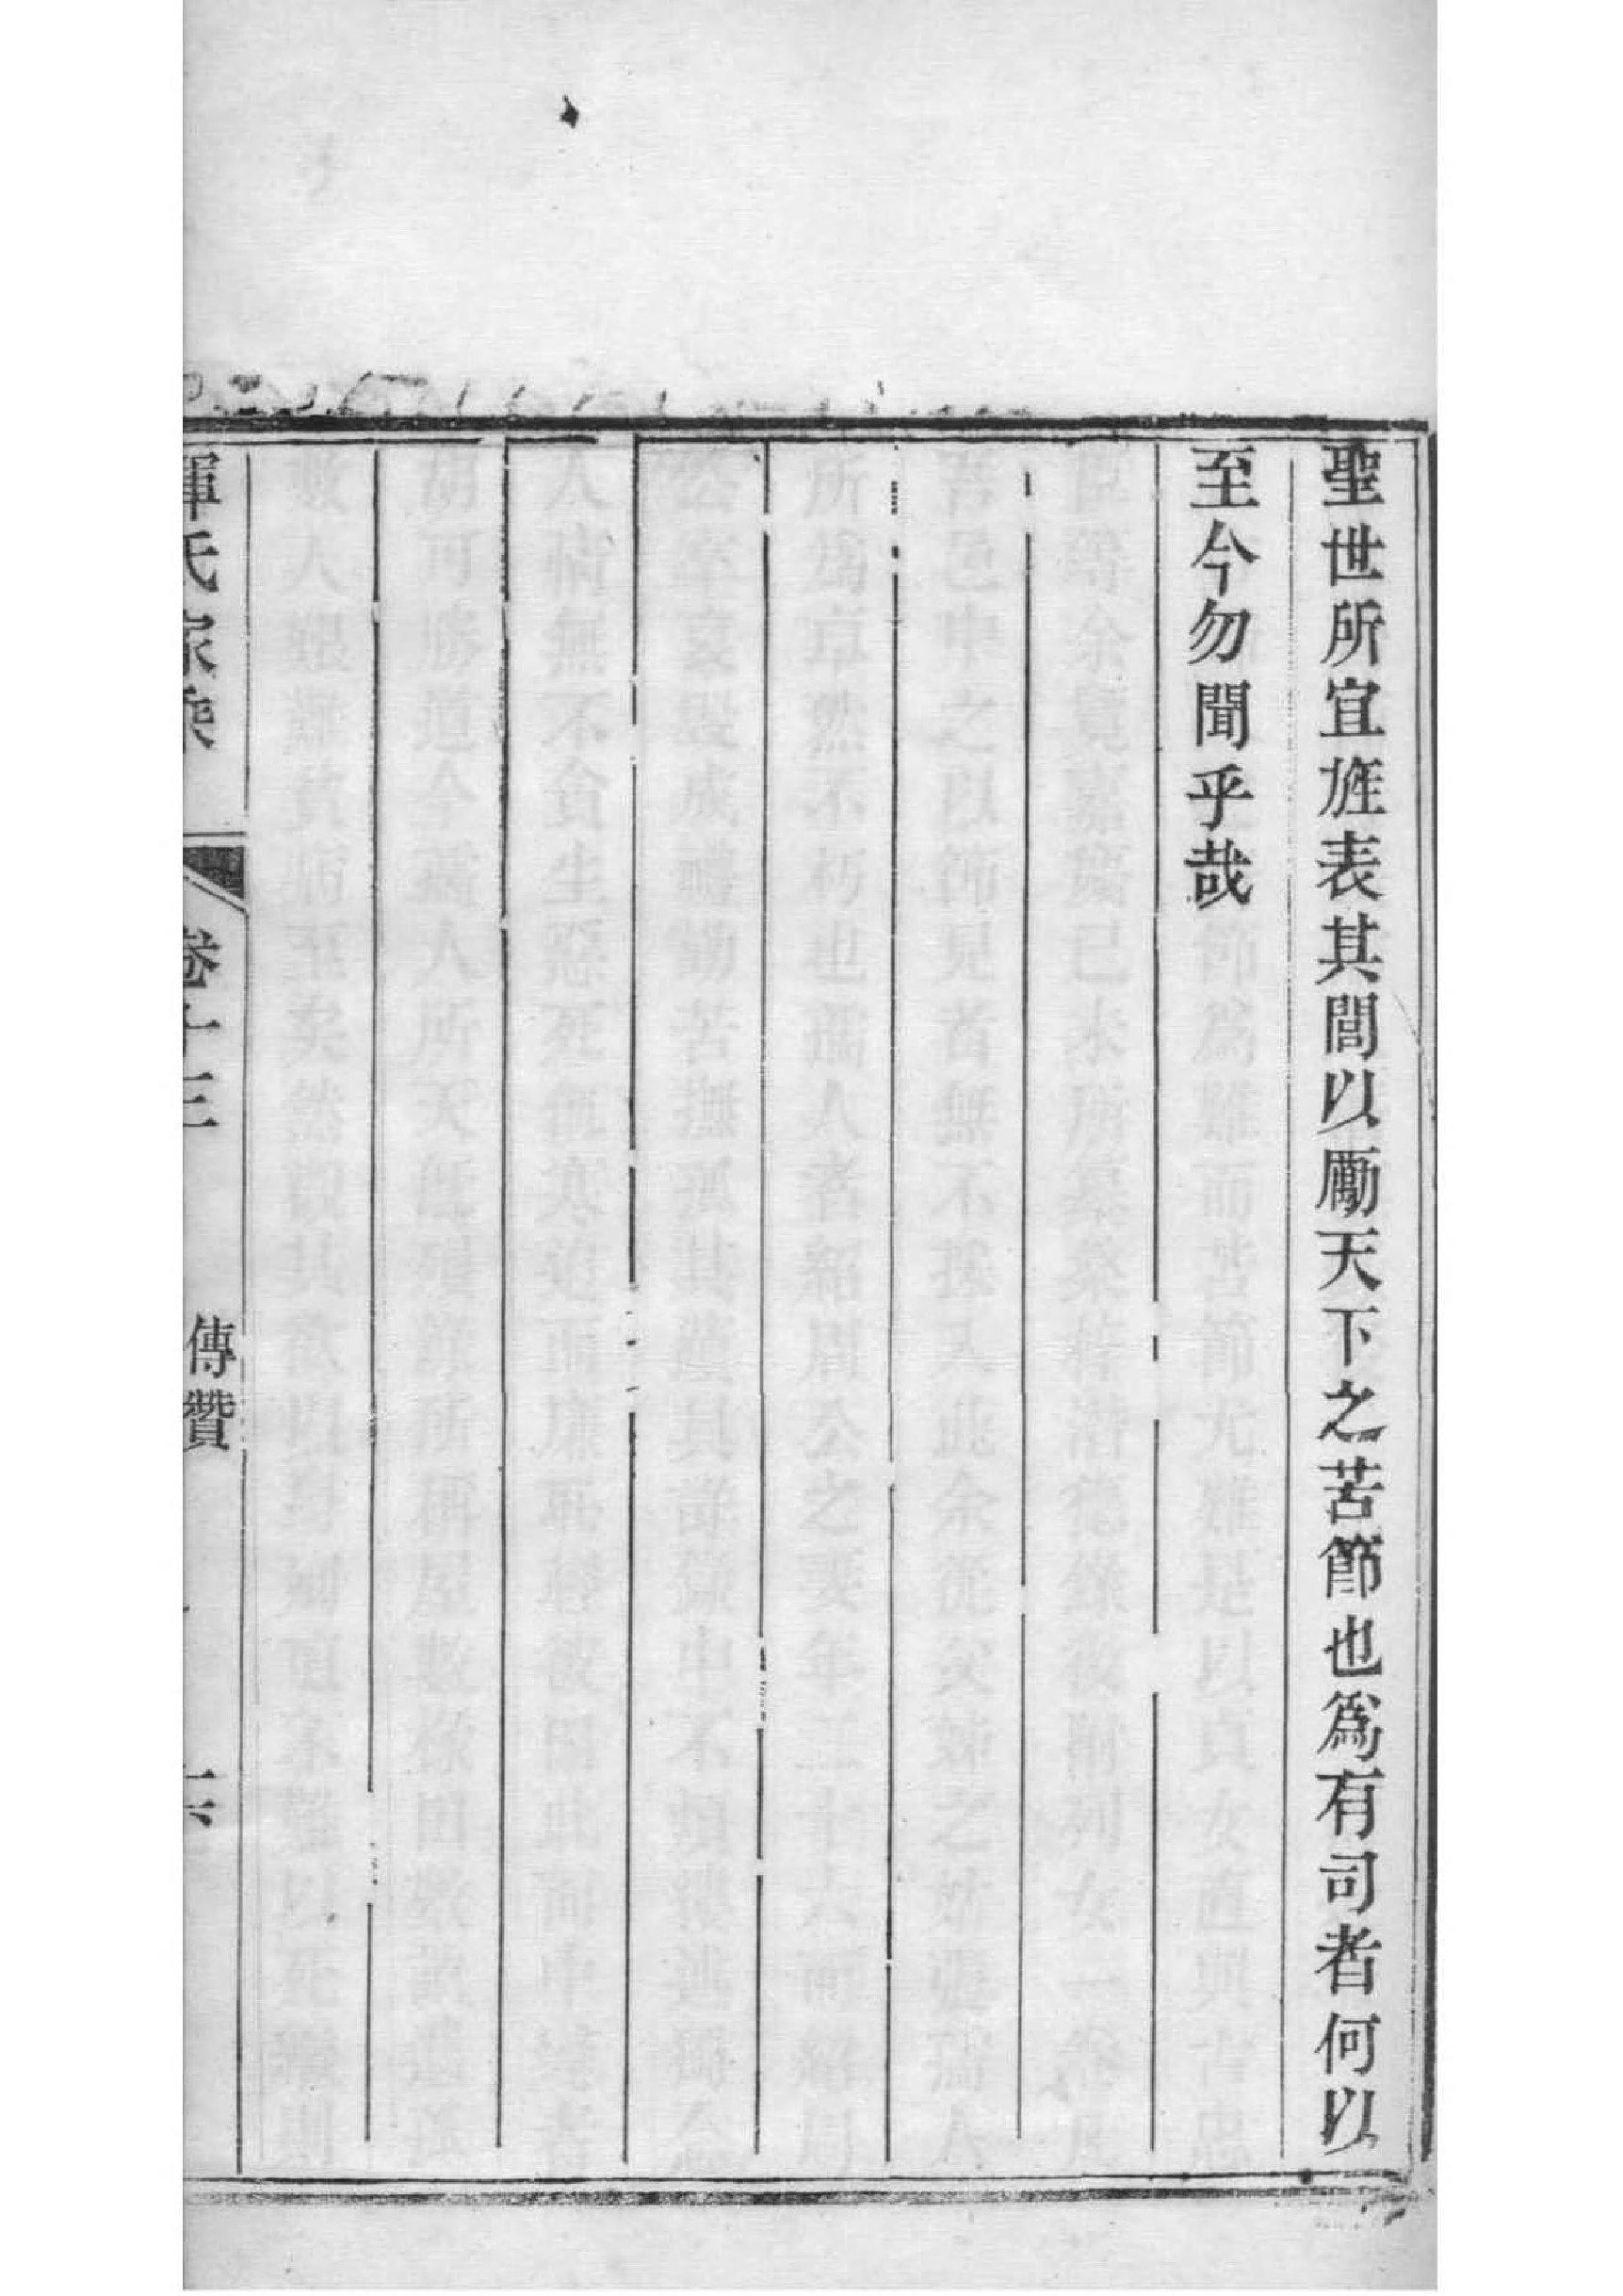 聖世所宜旌表其閭以勵天下之苦節也為有司者何以
至今勿聞乎哉
惲氏家乘
卷十三
傳贊
十六